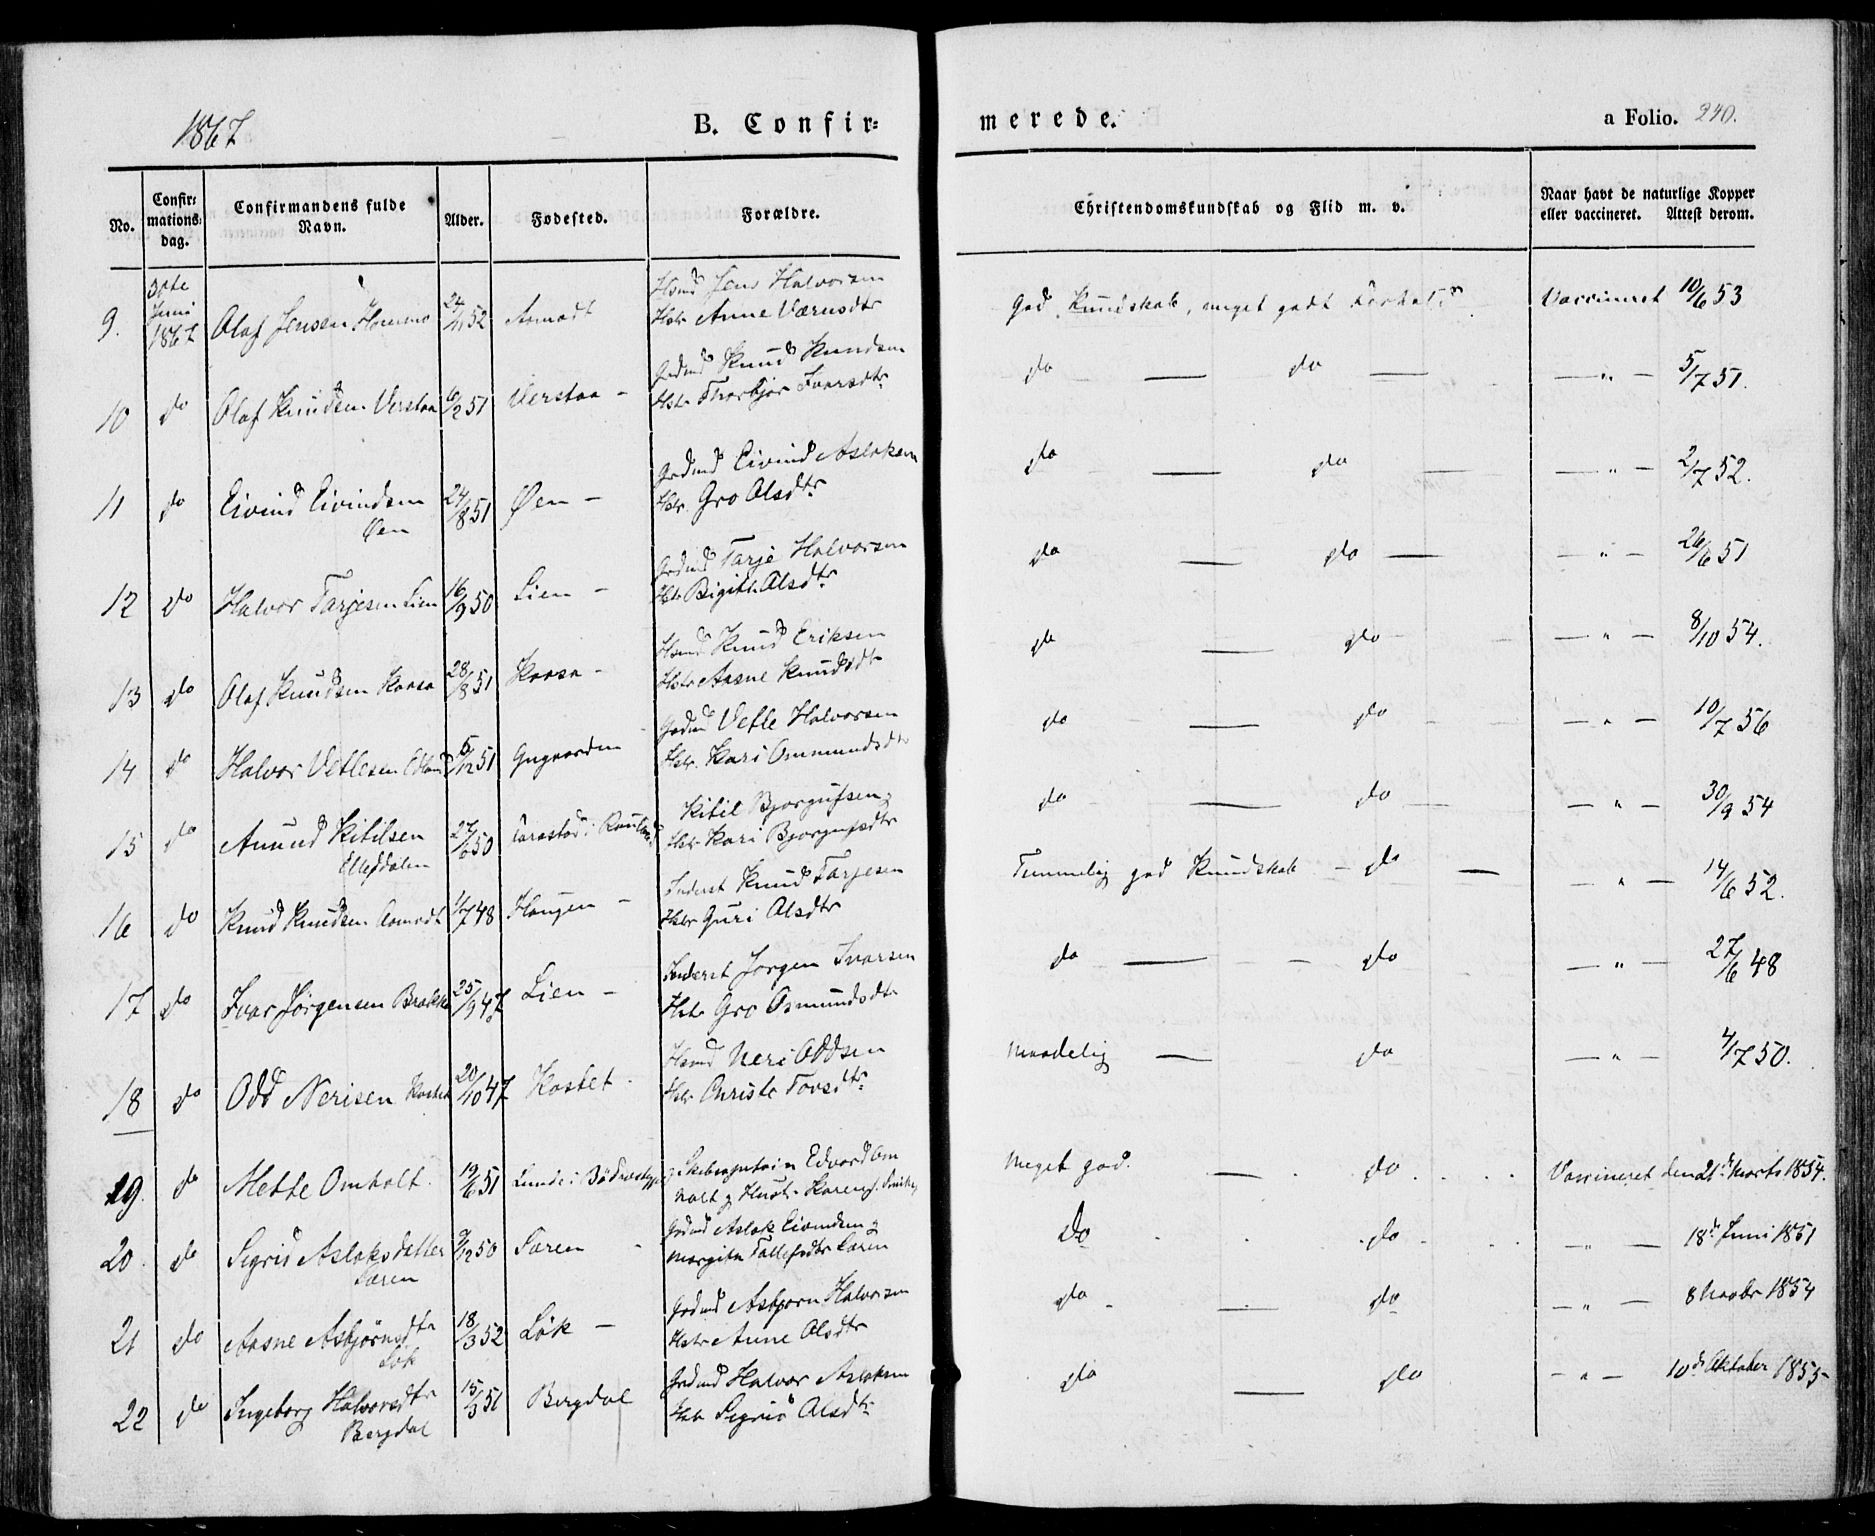 1867
B. Confir=
merede.
a Folio. 240.
No.
Confir=
mations=
dag.
Confirmandens fulde
Navn.
Alder.
Fødested.
Forældre.
Christendomskundskab og Flid m. v.
Naar havt de naturlige Kopper
eller vaccineret. Attest derom.
9. 30te Juni 1867 Olaf Jensen 24/11 52 Aamodt Hsmd Jens Halvorsen
Hstr Anne Værnsdtr
God Kundskab, meget godt Vaccineret 10/6 53
10 do Olaf Knudsen Verstaa 6/2 51 Verstaa – Grdmd Knud Knudsen
Hstr Thorbjør Ivarsdtr
do — do — — " — 5/7 51.
11 do Eivind Eivindsen 24/8 51 Øen – Grdmd Eivind Aslaksen
Øen Hstr. Gro Olsdtr
do — do — — " — 2/7 52.
12 do Halvor Tarjesen Lien 16/9 50 Lien – Grdmd Tarje Halvorsen
Hstr Bigith Olsdtr
do — do — — " — 26/6 51
13 do Olaf Knudsen Kaasa 28/8 51 Kaasa – Hsmd Knud Eriksen
Hstr Aasne Knudsdtr
do — do — " — 8/10 54.
14 do Halvor Vetlesen 5/12 51 Gugaarden Grdmd Vetle Halvorsen
Hstr. Kari Ommundsdtr
do — do — " — 10/7 56
15 do Amund Kittilsen 27/6 50 i Rauland Kitil Bjorgufsen
Hstr Kari Bjorgufsdtr
do — do — — " — 30/9 54
16 do Knud Knudsen Aamodt 1/7 48 Haugen – Inderst Knud Tarjesen
Hstr Guri Olsdtr
Temmelig god Kundskab – do — — " — 14/6 52.
17 do Ivar Jørgensen Brække 25/9 47 Lien – Inderst Jorgen Ivarsen
Hstr Gro Osmundsdtr
do — do — " — 27/6 48
18 do Odd Nerisen Kostet 20/10 47 Kostet Hsmd Neri Oddsen
Hstr Christe Tovsdtr
Maadelig — do — " — 4/7 50.
19. do Mette Omholt. 19/6 51 Lunde i Bö Edvard Om
holt & Hustr. Karen
Meget god. — do Vaccineret den 21de Marts 1854.
20. do Sigrid Aslaksdatter 9/12 50 Søren Grdmd Aslak Eivindsen &
Søren Margith Tallefsdtr Søren
Do do — " — 18de Juni 1851
21 do Aasne Asbjørnsdtr 18/3 52 Løk – Grdmd Asbjorn Halvorsen
Løk Hstr Anne Olsdtr
do — do — " — 8 Novbr 1854
22 do Ingeborg Halvorsdtr 15/3 51 Bergdal Grdmd Halvor Aslaksen
Bergdal Hstr Sigrid Olsdtr
do — do — " — 10de Oktober 1855